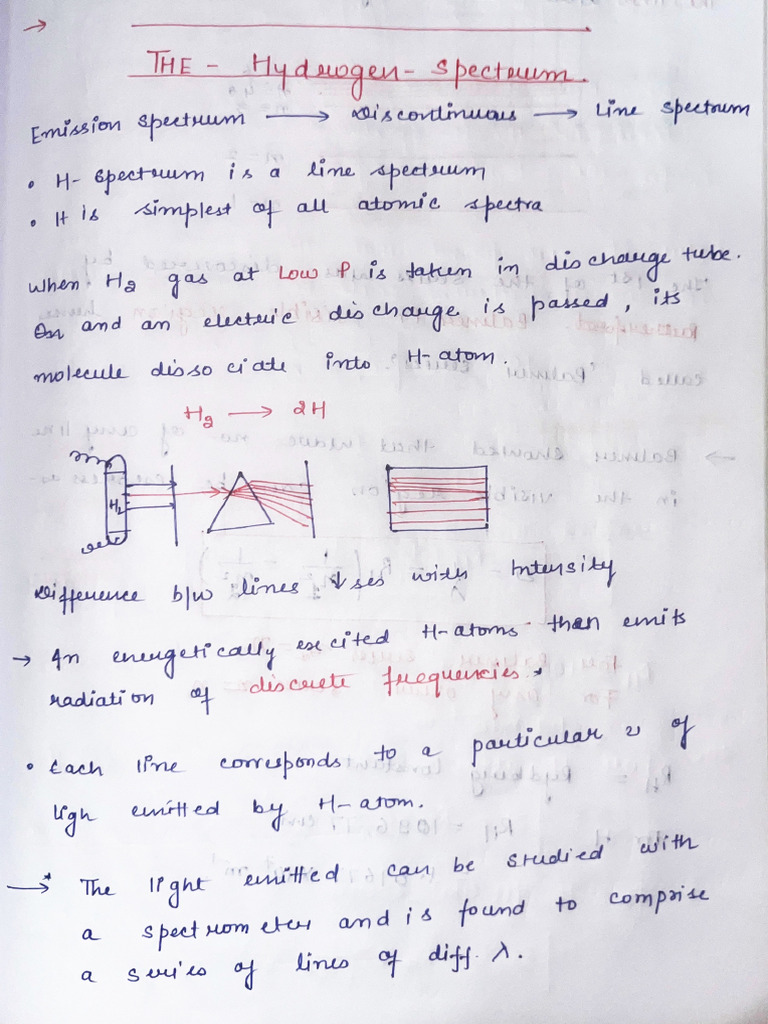 THE - Hydrogen - Spectrum.
Emission spectrum → Discontinuous → Line spectrum
• H- spectrum is a line spectrum
• It is simplest of all atomic spectra
When H₂ gas at Low P is taken in discharge tube.
On and an electric discharge is passed, its
molecule dissociate into H-atom.
H₂ → 2H
H₂
Difference b/w lines ↓ses with Intensity
→ An energetically excited H-atoms then emits
radiation of discrete frequencies,
• Each line corresponds to a particular ν of
ligh emitted by H-atom.
→* The light emitted can be studied with
a spectrometer and is found to comprise
a series of lines of diff. λ.